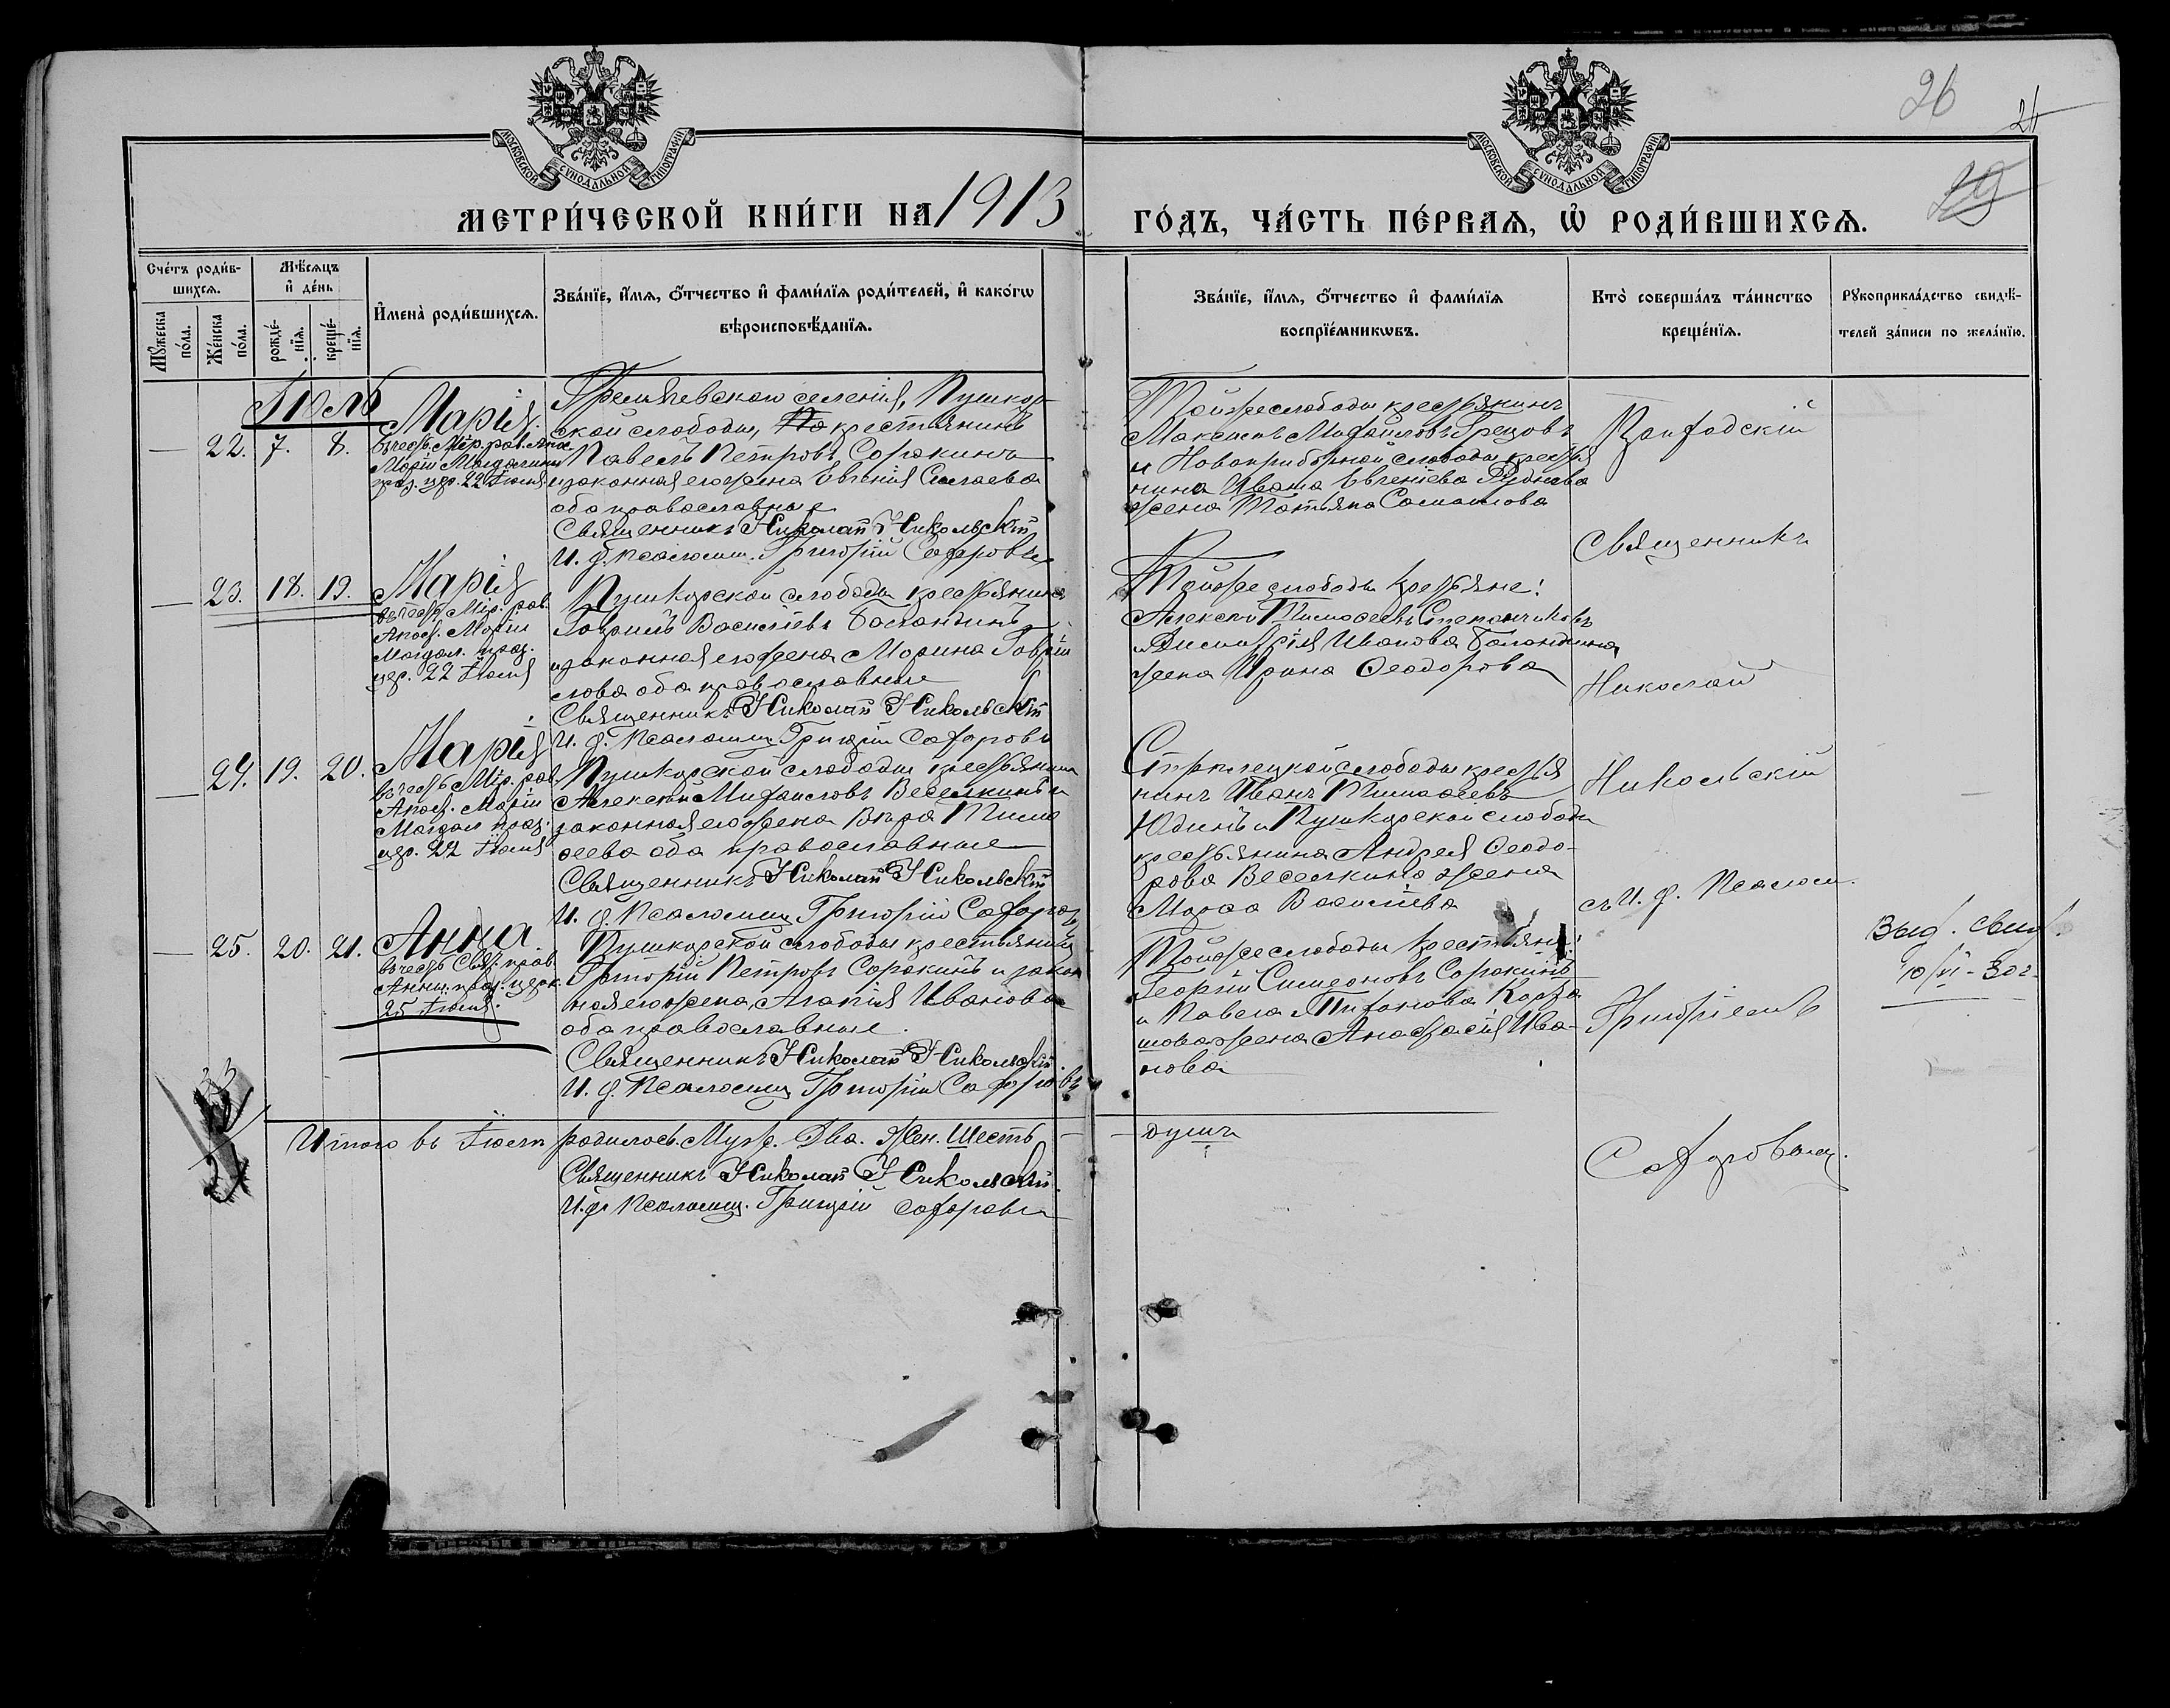 МОСКОВСКОЙ СУНОДАЛЬНОЙ ТИПОГРАФІИ
МОСКОВСКОЙ СУНОДАЛЬНОЙ ТИПОГРАФІИ
26
МЕТРИ́ЧЕСКОЙ КНИ́ГИ НА 1913
ГО́ДЪ, ЧА́СТЬ ПЕ́РВАЯ, Ѡ РОДИ́ВШИХСЯ.
Сче́тъ роди́в-
шихся.
Мꙋ́жеска по́ла.
Же́нска по́ла.
Мѣ́сяцъ
и҆ де́нь
рожде́-
нїя.
креще́-
нїя.
И҆мена̀ роди́вшихся.
Зва́нїе, и҆́мя, ѻ҆́тчество и҆ фами́лїя роди́телей, и҆ како́гѡ
вѣроисповѣ́данїя.
Зва́нїе, и҆́мя, ѻ҆́тчество и҆ фами́лїя
воспрїе́мникѡвъ.
Кто̀ соверша́лъ та́инство
креще́нїя.
Рꙋкоприкла́дство свидѣ́-
телей за́писи по жела́нїю.
Іюль
22. 7. 8.
Марія
въ честь Мѵр. рав. Апос.
Маріи Магдалины
праз. цер. 22 Іюля
селенія, Пушкар-
ской слободы, крестьянинъ
Павелъ Петровъ Сорокинъ
и законная его жена Евгенія
оба православные
Священникъ Николай Никольскій
И. д. псаломщ. Григорій Сафоровъ
Той же слободы крестьянинъ
Максимъ Михайловъ
и Новоприборной слободы кресть
янина Ивана Евгеніева Руднева
жена Татьяна Самойлова
23. 18. 19.
Марія
въ честь Мѵр. рав.
Апост. Маріи
Магдал. праз.
цер. 22 Іюля
Пушкарской слободы крестьянинъ
Гавріилъ Василіевъ Баландинъ
и законная его жена Марина Гаврiи
лова оба православные
Священникъ Николай Никольскій
И. д. псаломщ. Григорій Сафоровъ
Той же слободы крестьяне:
Алексѣй Тимоѳеевъ
и Димитрія Иванова Баландина
жена Ирина Ѳеодорова
24. 19. 20.
Марія
въ честь Мѵр. рав.
Апост. Маріи
Магдал. праз.
цер. 22 Іюля
Пушкарской слободы крестьянинъ
Алексѣй Михаиловъ Веселкинъ и
законная его жена Вѣра Тимо
ѳеева оба православные
Священникъ Николай Никольскій
И. д. псаломщ. Григорій Сафоровъ
Стрѣлецкой слободы кресть
янинъ Иванъ Тимоѳеевъ
Юдинъ и Пушкарской слободы
крестьянина Андрея Ѳеодо-
рова Веселкина жена
Марѳа Василіева
25. 20. 21.
Анна
въ честь Свят. прав.
Анны праз. церк.
25 Іюля.
Пушкарской слободы крестьянинъ
Григорій Петровъ Сорокинъ и закон
ная его жена Агапія Иванова
оба православные.
Священникъ Николай Никольскій.
И. д. псаломщ. Григорій Сафоровъ
Той же слободы крестьяне:
Георгій Симеоновъ Сорокинъ
и Павла Титонова
жена Анастасія Ива-
нова
Священникъ
Николай
Никольскій
съ И. д. псалом.
Григоріемъ
Сафоровымъ.
Выд. свид.
10/VI - 30 г.
Итого въ Іюлѣ родилось Муж. Два. Жен. Шесть
душъ
Священникъ Николай Никольскій.
И. д. псаломщ. Григорій Сафоровъ